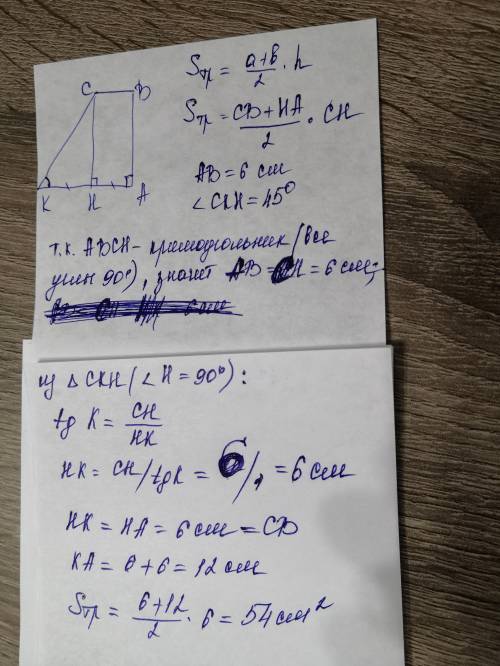 C В
K H A
Sтр = a+b/2 · h
Sтр = CB+HA/2 · CH
AB = 6 см
∠CKH = 45°
т.к. ABCH - прямоугольник (все
углы 90°), значит AB = CH = 6 см;
из △ CKH (∠H = 90°):
tg K = CH/HK
HK = CH/tgK = 6/1 = 6 см
HK = HA = 6 см = CB
KA = 6 + 6 = 12 см
Sтр = 6+12/2 · 6 = 54 см²